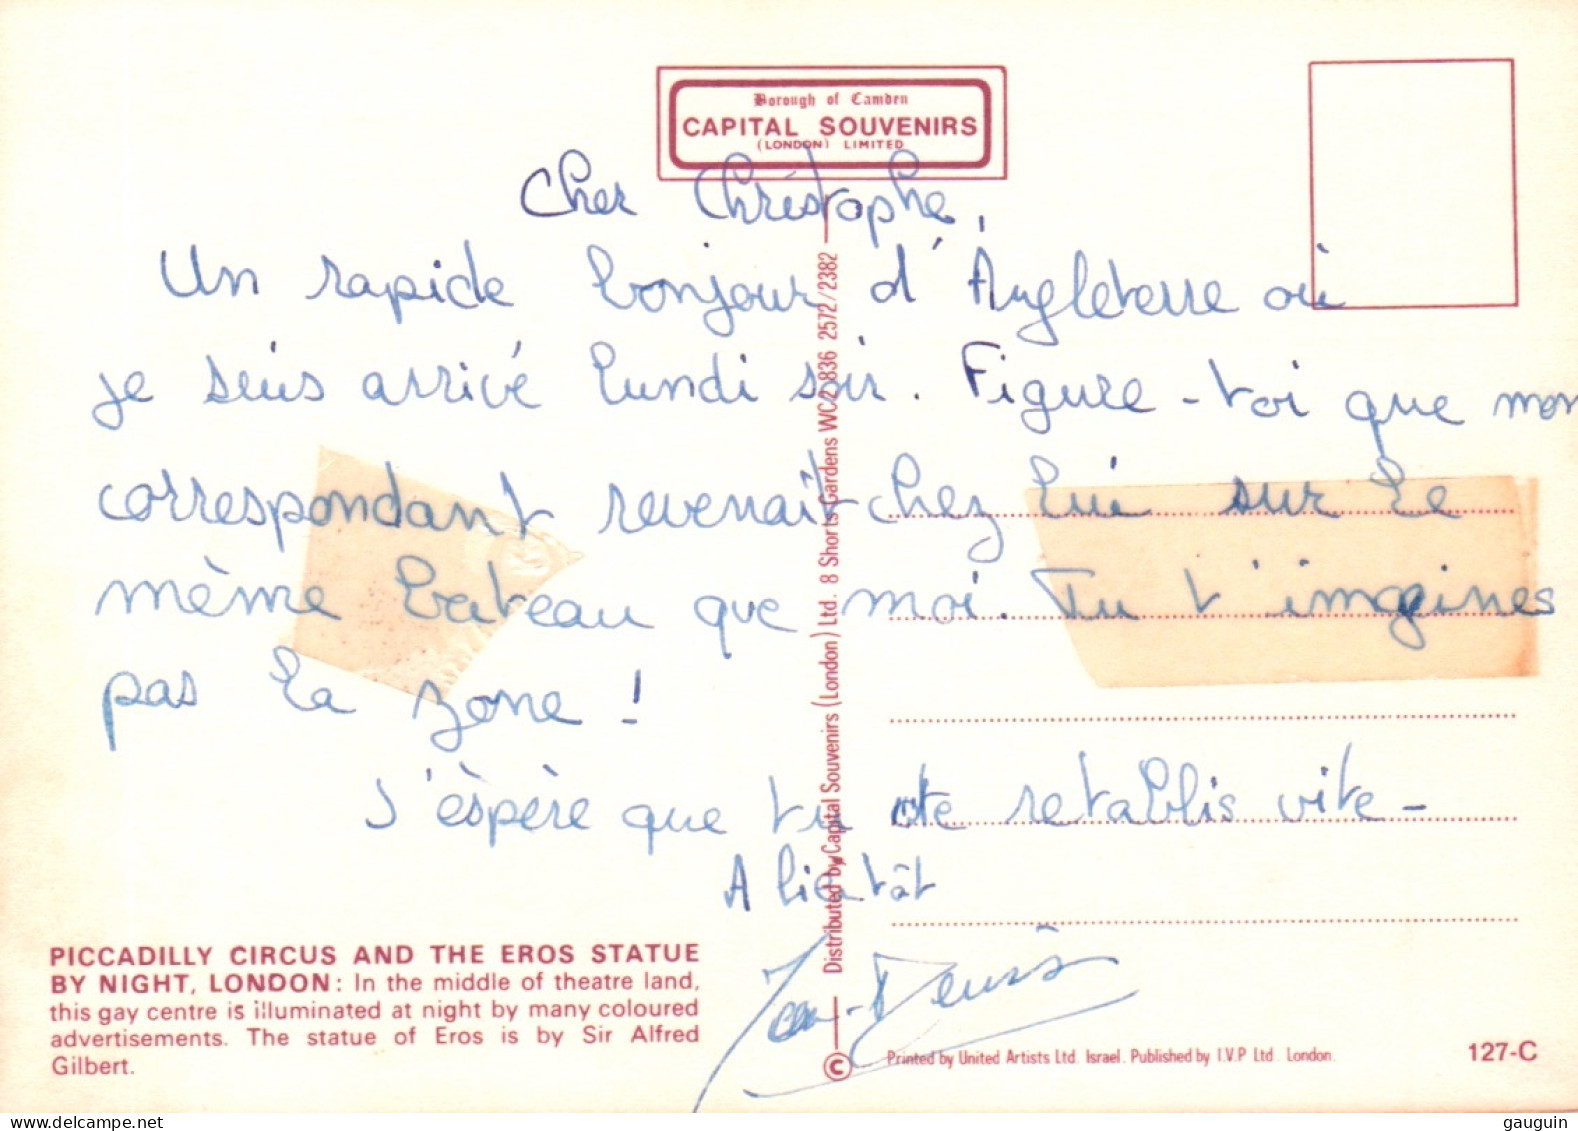 Borough of Camden
CAPITAL SOUVENIRS
(LONDON) LIMITED
Cher Christophe,
Un rapide bonjour d'Angleterre où
je suis arrivé lundi soir. Figure-toi que mon
correspondant revenait chez lui sur le
même bateau que moi. Tu t'imagines
pas la zone !
J'éspère que tu te retablis vite-
A bientôt
Jean-Denis
Distributed by Capital Souvenirs (London) Ltd. 8 Shorts Gardens WC2 836 2572/2382
PICCADILLY CIRCUS AND THE EROS STATUE
BY NIGHT, LONDON: In the middle of theatre land,
this gay centre is illuminated at night by many coloured
advertisements. The statue of Eros is by Sir Alfred
Gilbert.
©
Printed by United Artists Ltd. Israel. Published by I.V.P Ltd. London.
127-C
gauguin
delcampe.net